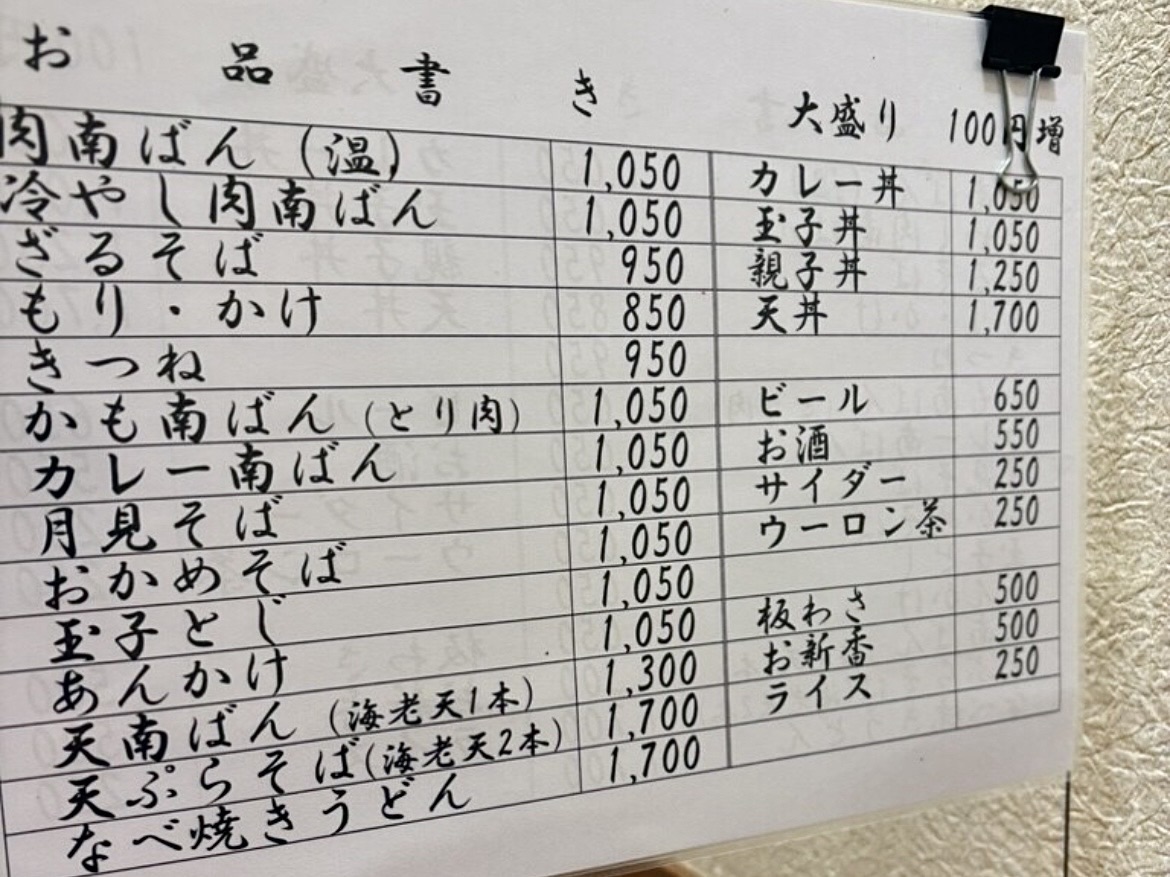 お品書き
肉南ばん (温) 1,050
冷やし肉南ばん 1,050
ざるそば 950
もり・かけ 850
きつね 950
かも南ばん (とり肉) 1,050
カレー南ばん 1,050
月見そば 1,050
おかめそば 1,050
玉子とじ 1,050
あんかけ 1,050
天南ばん (海老天1本) 1,300
天ぷらそば (海老天2本) 1,700
なべ焼きうどん 1,700
大盛り 100円増
カレー丼 1,050
玉子丼 1,050
親子丼 1,250
天丼 1,700
ビール 650
お酒 550
サイダー 250
ウーロン茶 250
板わさ 500
お新香 500
ライス 250